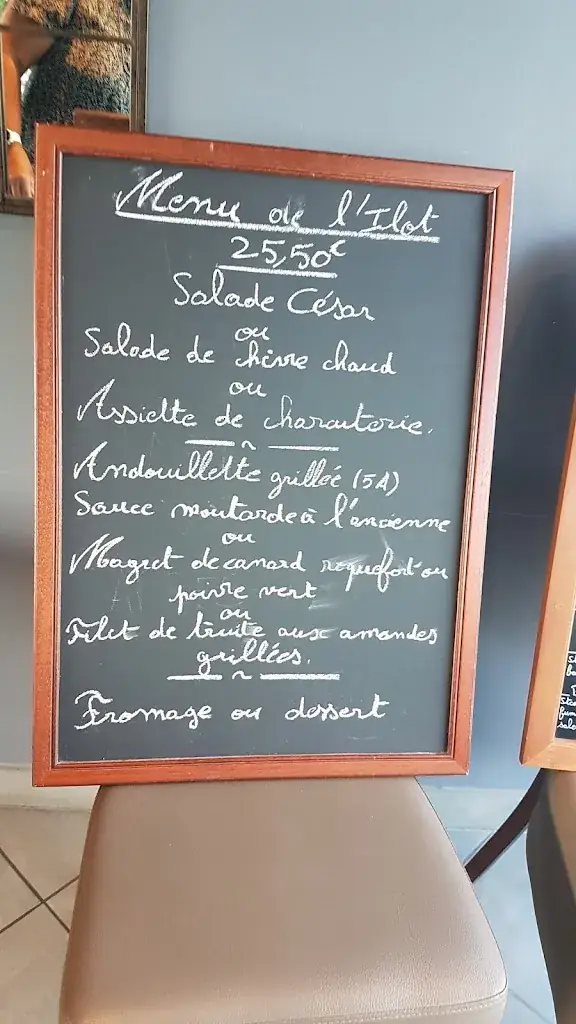 Menu de l'Ilot
25,50€
Salade César
ou
Salade de chèvre chaud
ou
Assiette de charcuterie.
Andouillette grillée (5A)
Sauce moutarde à l'ancienne
ou
Magret de canard roquefort ou
poivre vert
ou
Filet de truite aux amandes
grillées.
Fromage ou dessert